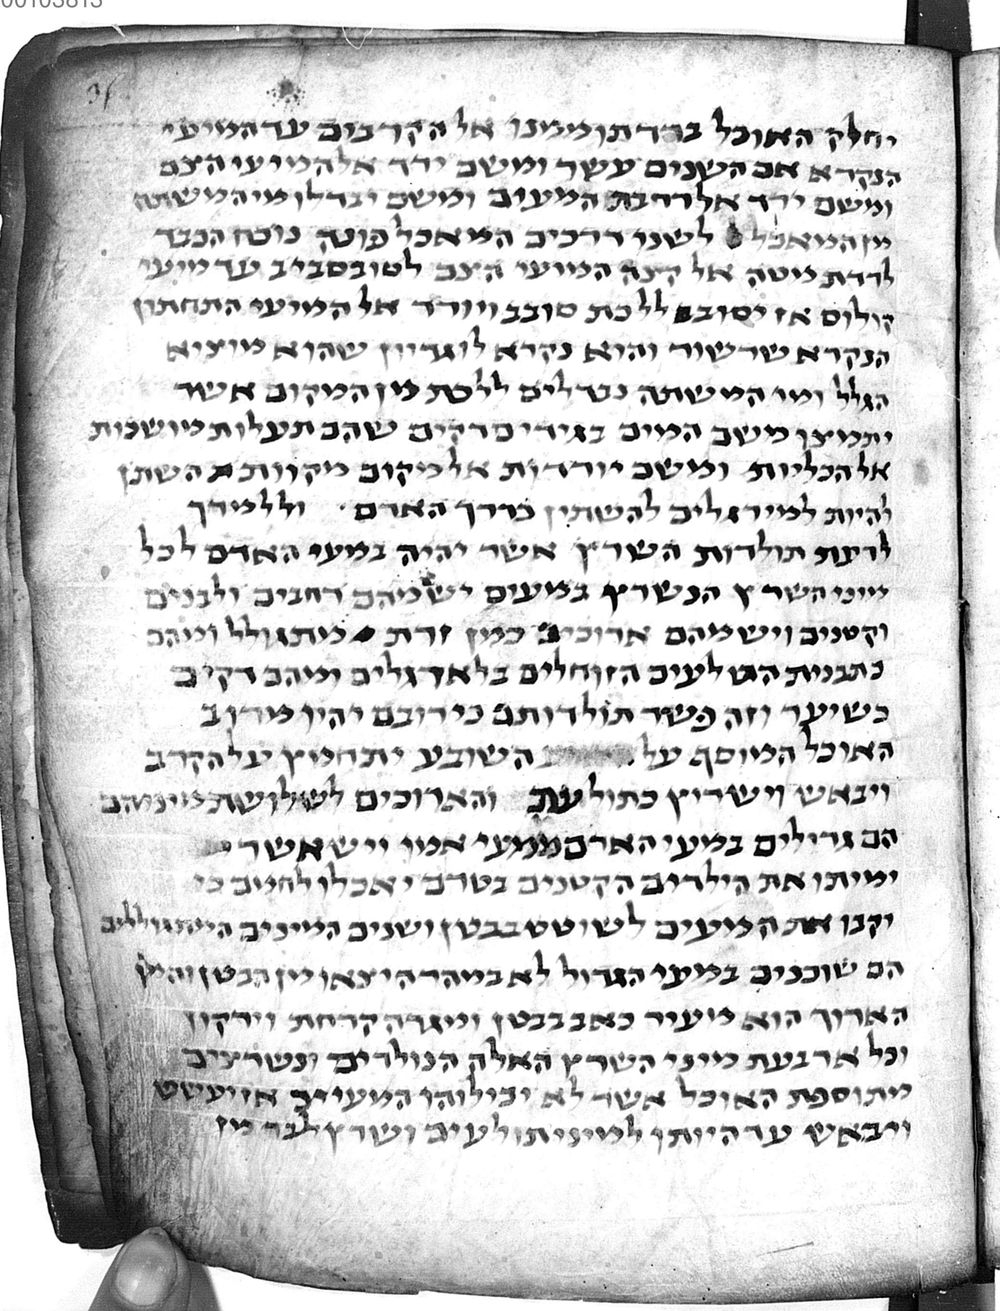 00103813
יחלק האוכל ברדתו ממנו אל הקרבים עד המיעי
הנקרא אם השנים עשר ומשם ירד אל המיעי הצם
ומשם ירד אל רחבת המעים ומשם יבדלו מי המשתה
מן המאכל לשני דרכים המאכל פונה נוכח הכבד
לרדת מטה אל קצה המיעי הצם לסוב סביב עד מיעי
קולוס אז יסוב ללכת סובב ויורד אל המיעי התחתון
הנקרא שרשור והוא נקרא לוגריון שהוא מוציא
הגלל ומי המשתה נבדלים ללכת מן המקום אשר
יתמצו משם המים בגידים דקים שהם תעלות מושכות
אל הכליות ומשם יורדות אל מקום מקוות השתן
להיות למי רגלים להשתין כדרך האדם וללמדך
לדעת תולדות השרץ אשר יהיה במעי האדם לכל
מיני השרץ הנשרץ במעים יש מהם רחבים ולבנים
וקטנים ויש מהם ארוכים כמין זרת מתגולל ומהם
כתבנית התולעים הזוחלים בלא רגלים ומהם דקים
כשיער וזה פשר תולדותם כי רובם יהיו מרוב
האוכל המוסף על השובע יתחמץ על הקרב
ויבאש וישרוץ כתולעת והארוכים לשלושת מיניהם
הם גדולים במעי האדם ממעי אמו ויש אשר
ימיתו את הילדים הקטנים בטרם יאכלו לחמם כי
יקבו את המעים לשוטט בבטן ושנים המינים המתגוללים
הם שוכנים במעי הגדול לא במהרה יצאו מן הבטן והמין
הארוך הוא מעיר כאב בבטן ומגרה קדחת וירקון
וכל ארבעת מיני השרץ האלה הנולדים ונשרצים
מתוספת האוכל אשר לא יכילוהו המעים אז יעשש
ויבאש עד היותו למיני תולעים ושרץ לבד מן